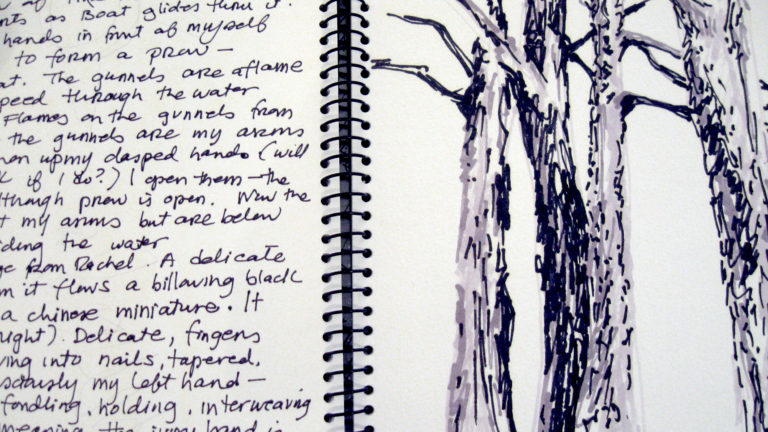 nts as Boat glides thru it.
hands in front of myself
to form a prow —
at. The gunnels are aflame
peed through the water
Flames on the gunnels from
the gunnels are my arms
hon up my clasped hands (will
k if I do?) I open them — the
lthough prow is open. Now the
t my arms but are below
iding the water
ge from Rachel. A delicate
m it flows a billowing black
a chinese miniature. It
ight). Delicate, fingers
ving into nails, tapered,
sciously my left hand —
fondling, holding, interweaving
meaning the